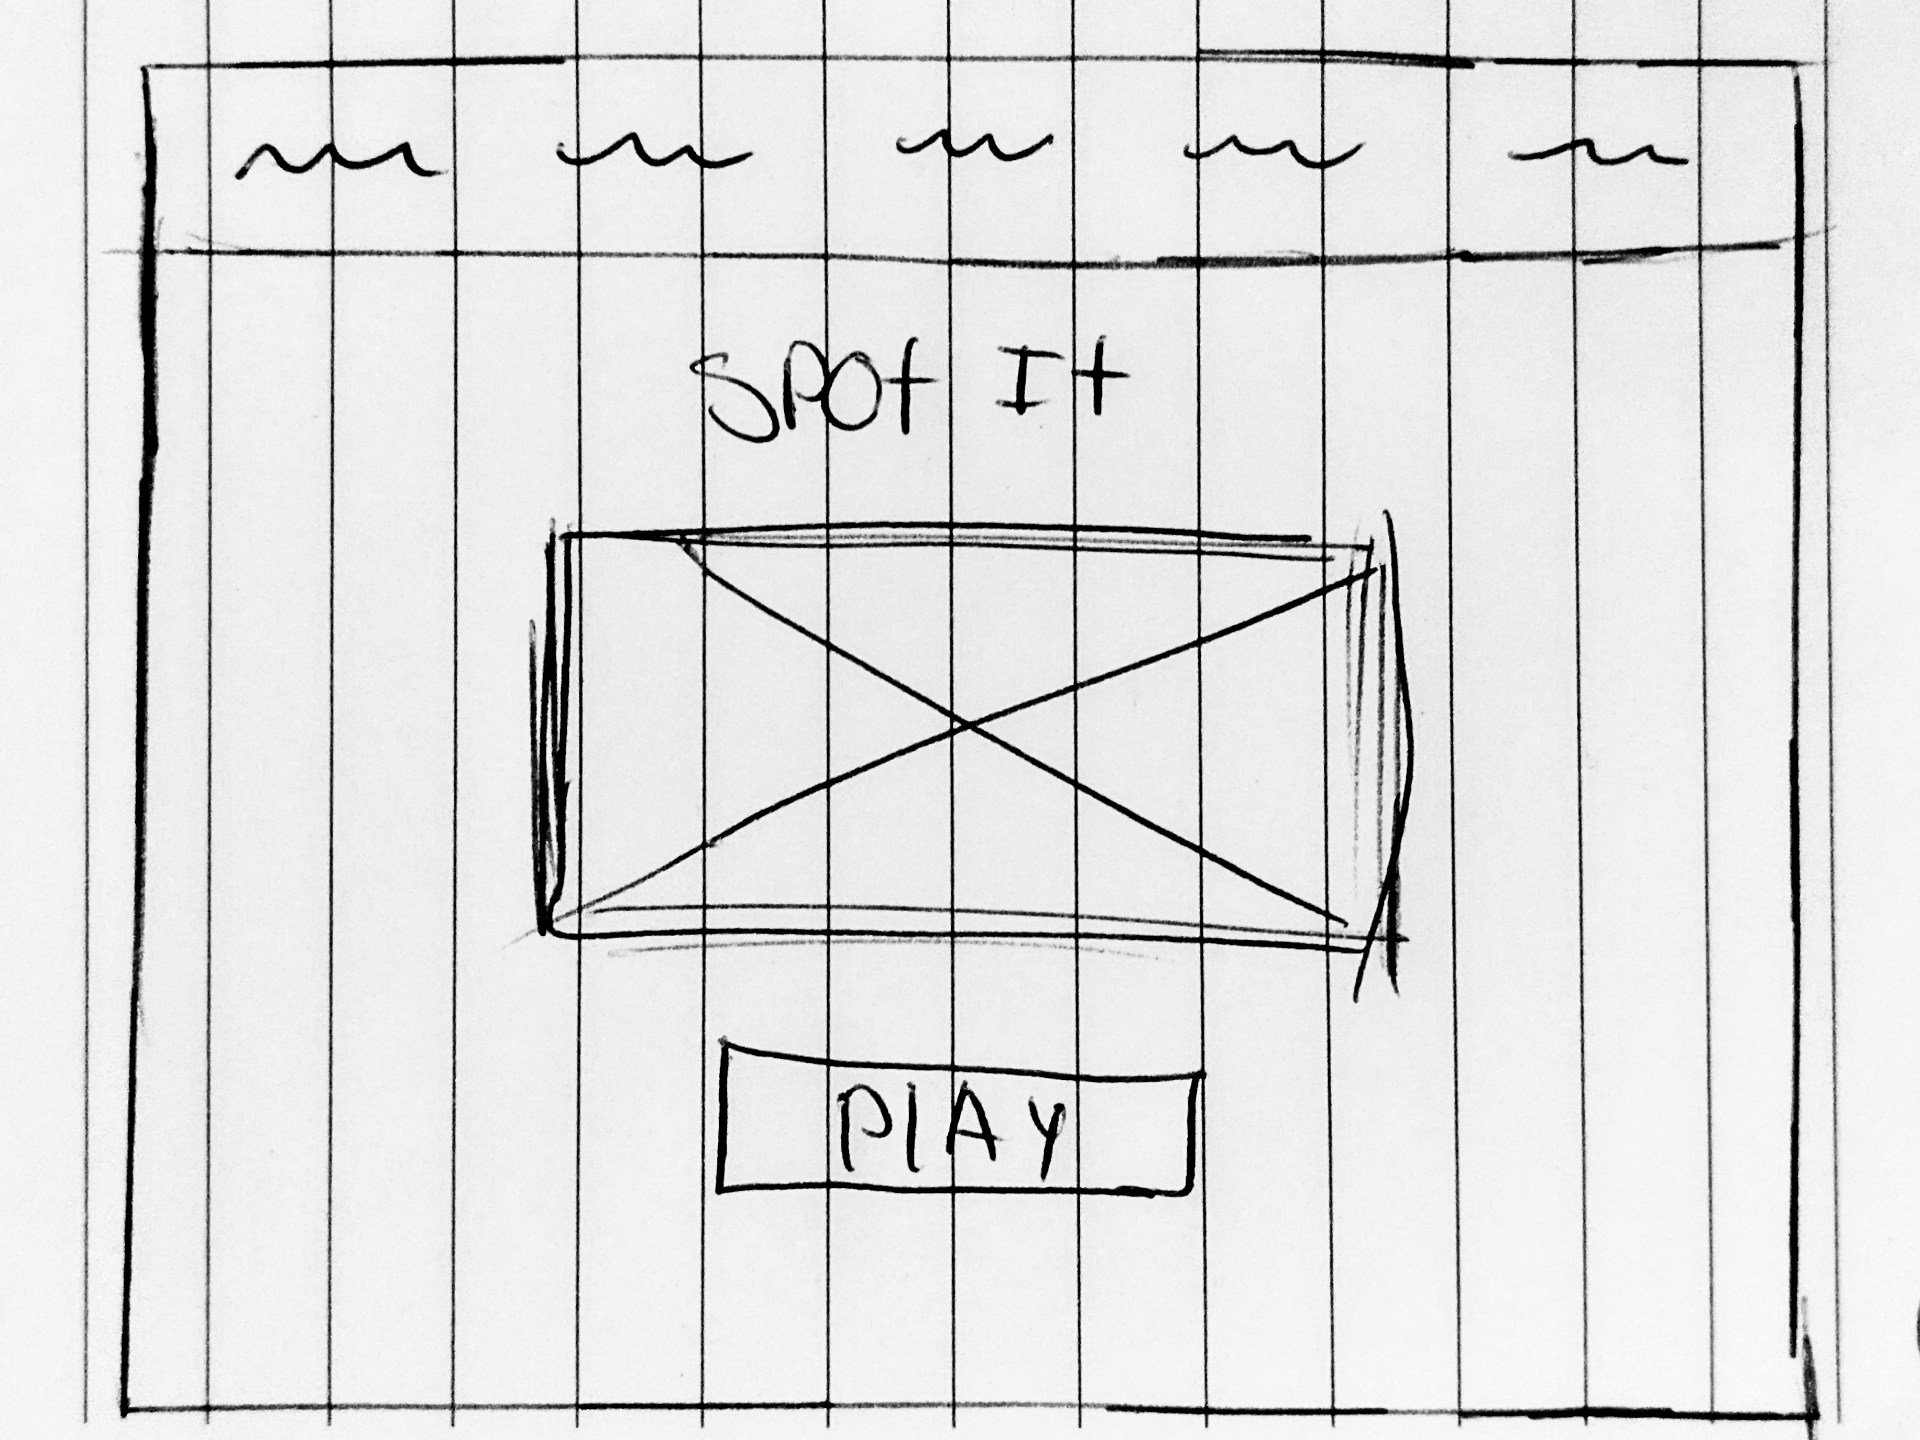 SPOt It
PlAy